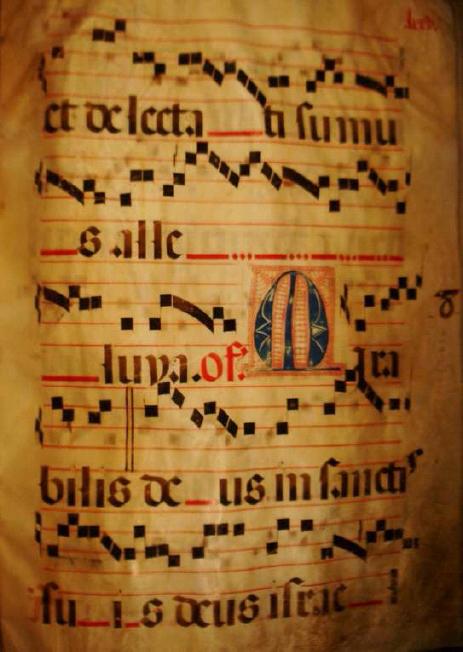 et delecta ti sumu
s alle
luya. of. Mira
bilis de us in sancti
su i s deus israe l